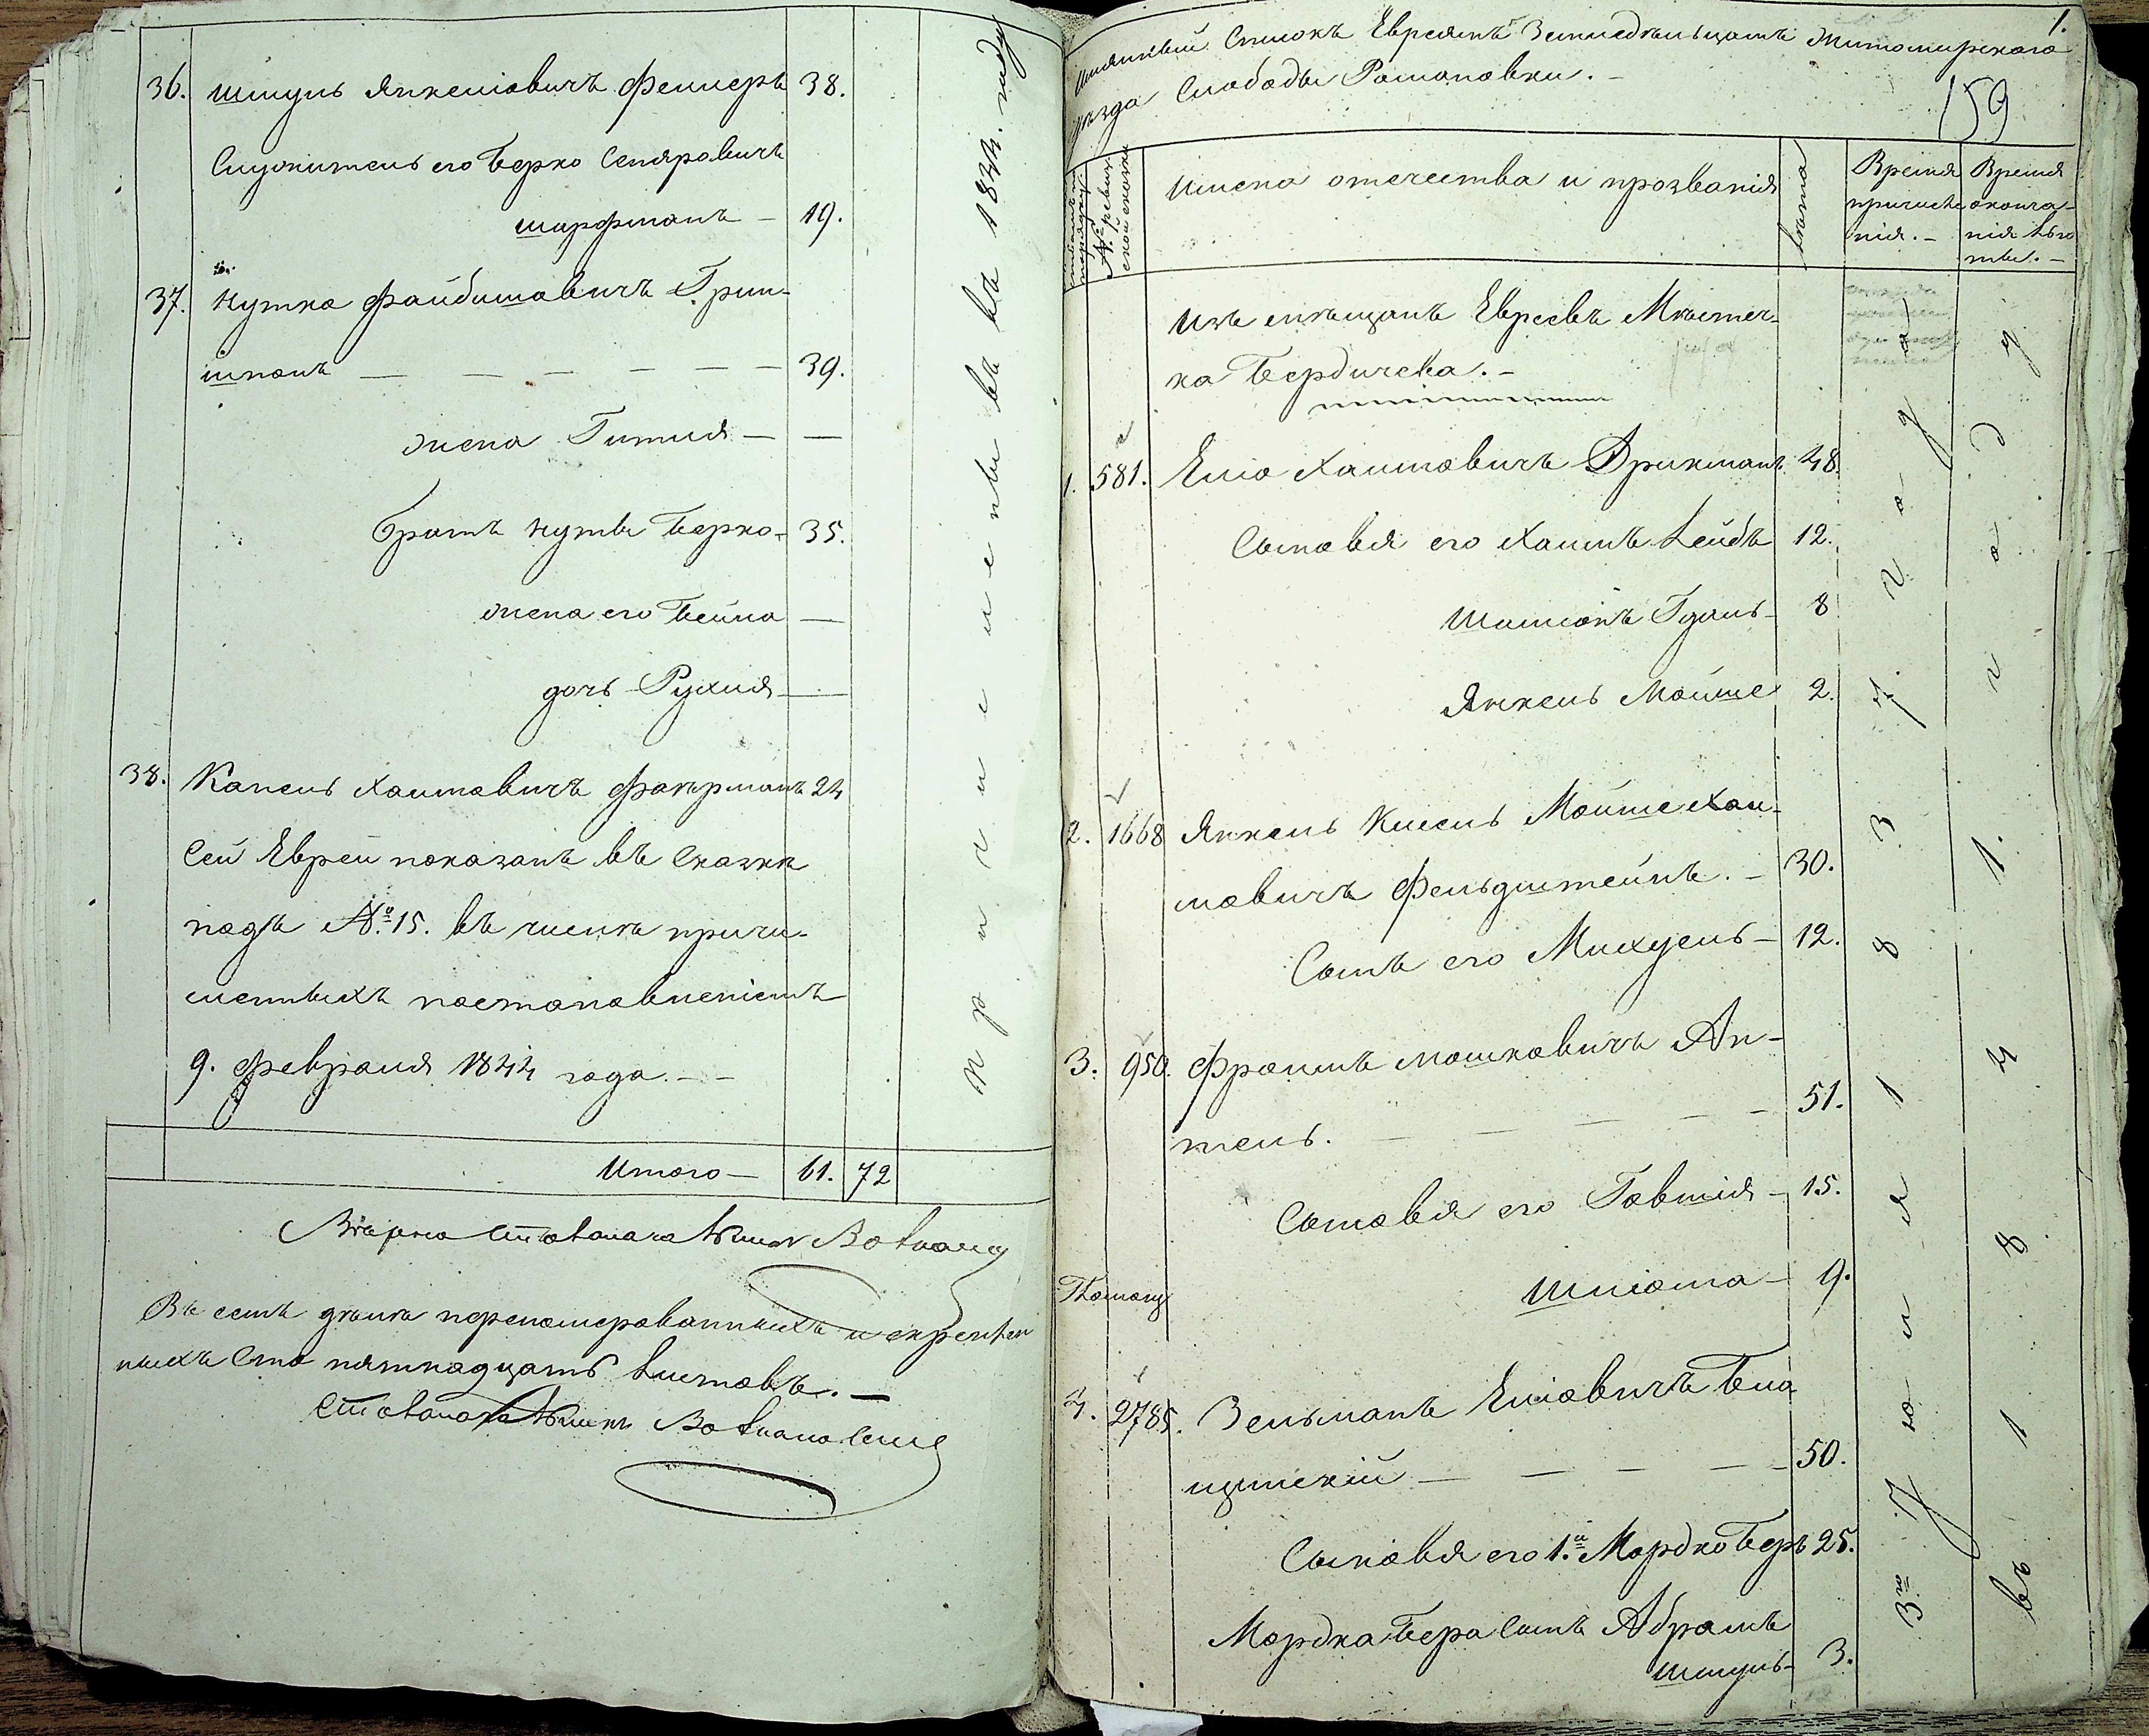 36. Шмуль Янкеліовичъ Феллеръ 38.
Служитель его Берко Сендровичъ
Шарфманъ — 19.
37. Нутка Файбишовичъ Грин-
шпанъ — — — — — — 39.
жена Гитля — —
братъ Нуты Берко - 35.
жена его Бейла —
дочь Рухля —
38. Капель Хаимовичъ Фаѣрманъ 24
Сей Еврей показанъ въ Сказкѣ
подъ №. 15. въ числѣ причи-
сленныхъ постановленіемъ
9. Февраля 1844 года. — —
Итого — 61. 72
причислены въ 1844. году
Вѣрно Столоначальникъ
Въ семъ дѣлѣ перенумерованныхъ и скрѣплен
ныхъ Сто пятнадцать листовъ. —
Столоначальникъ
1.
Имянный Списокъ Евреямъ Земледѣльцамъ Житомирскаго
уѣзда Слободы Романовки. —
159
№. ревиз-
ской сказки
Имена отечества и прозванія
Лѣта
Время
причисле
нія. —
Время
оконча-
нія льго
ты. —
Изъ мѣщанъ Евреевъ Мѣстеч-
ка Бердичева. —
1. 581. Еліо Хаимовичъ Брикманъ 48.
Сыновья его Хаимъ Лейбъ 12.
Шлиомъ Гдаль - 8
Янкель Мойше 2.
2. 1668 Янкель Кисель Мойше Хаи-
мовичъ Фельдштейнъ. — 30.
Сынъ его Михуель — 12.
3. 950. Фроимъ Мошковичъ Ап-
тель. — — — — — 51.
Сыновья его Говшія — 15.
Шліома — 9.
4. 2785. Зельманъ Еліовичъ Бла
щинскій — — — — — 50.
Сыновья его 1.й Мордко Беръ 25.
Мордка Бера Сынъ Абрамъ
Шмуль — 3.
3го Іюля 1837. года
въ 1841. году